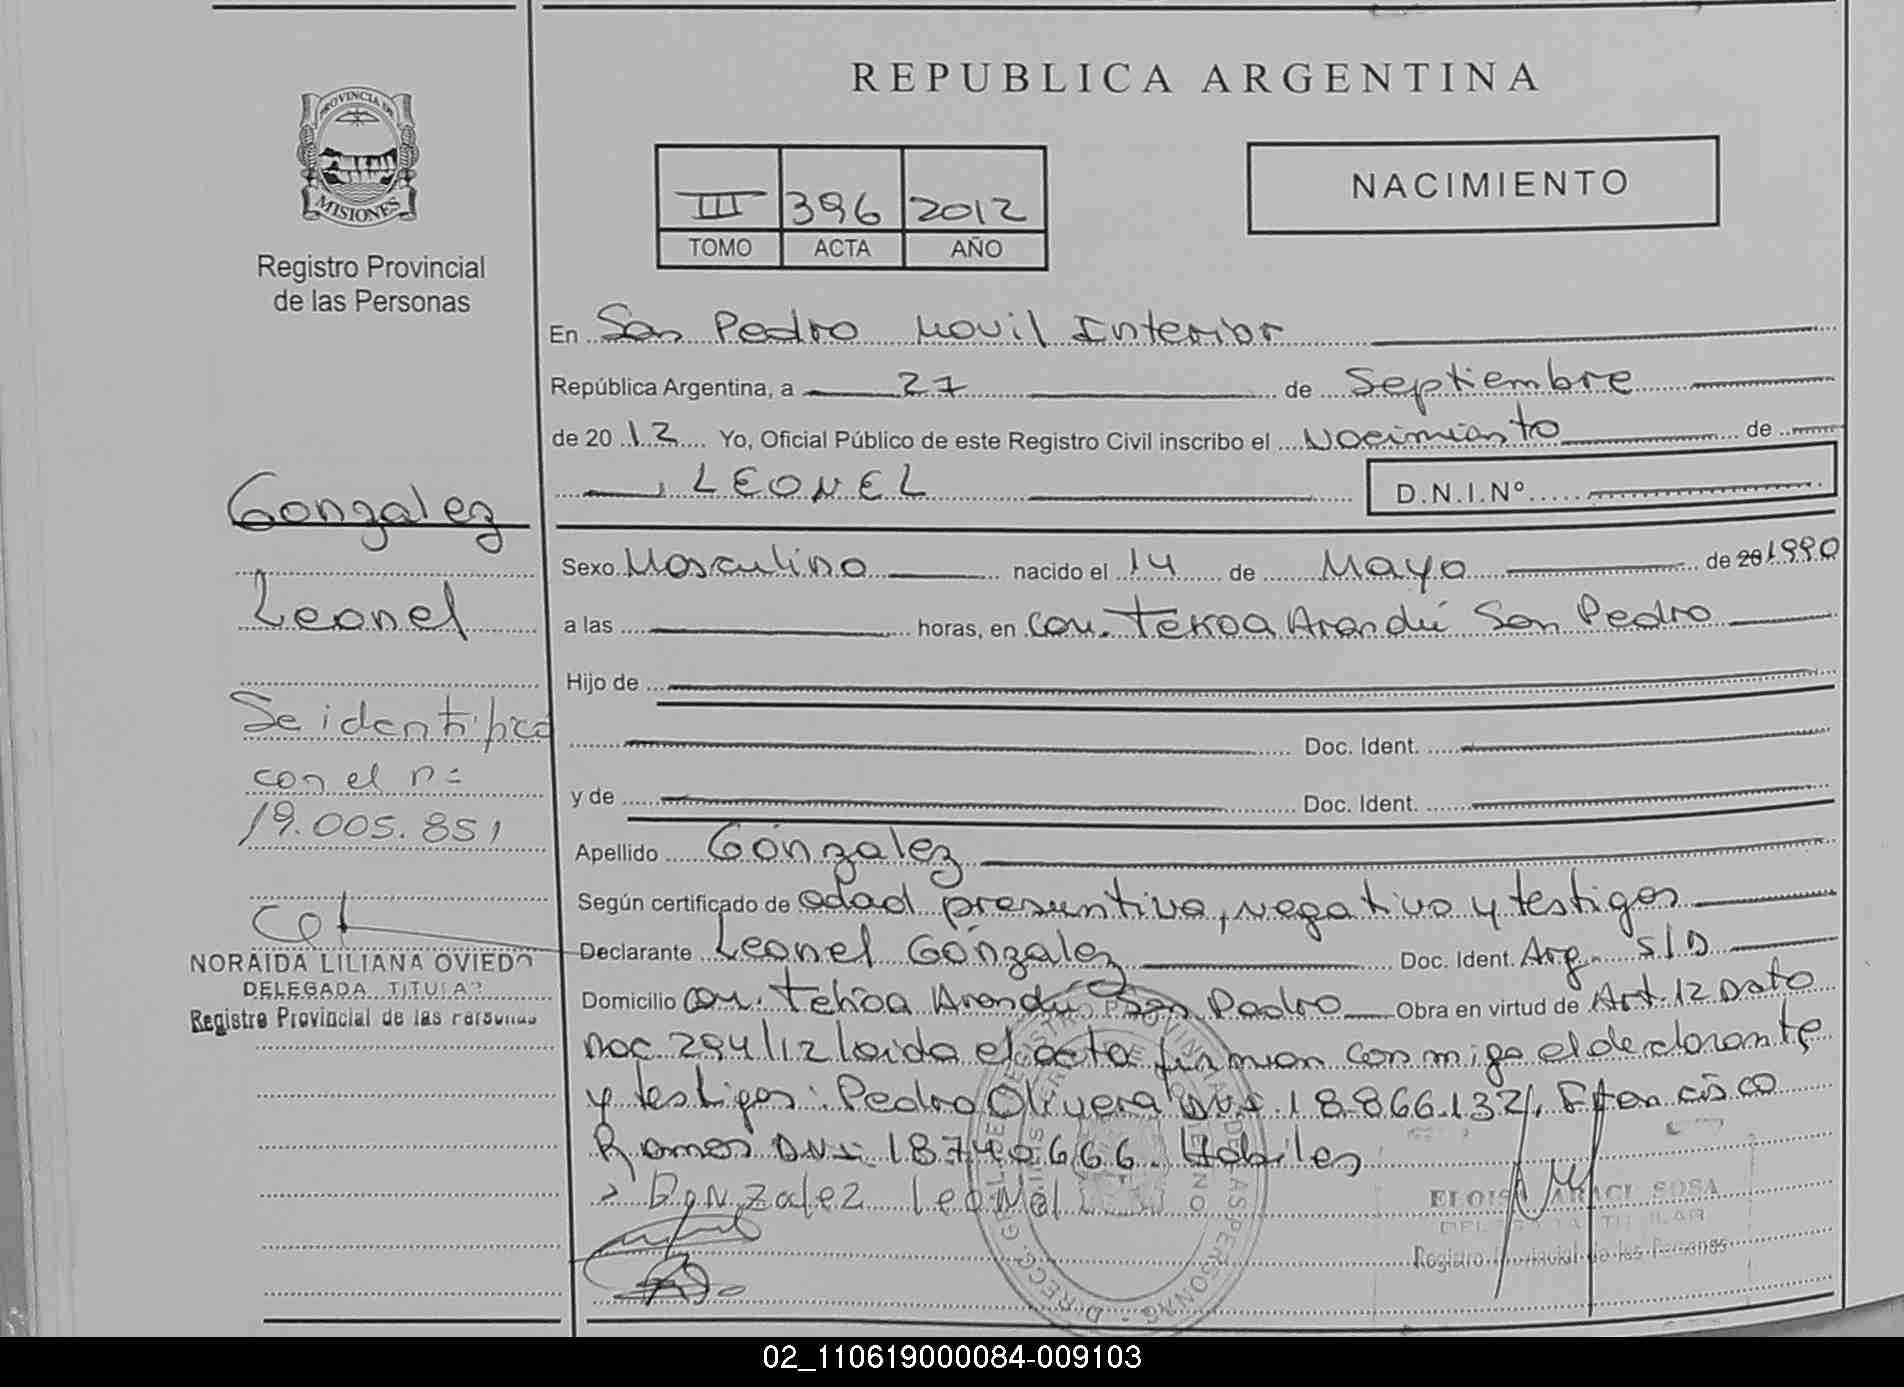 REPUBLICA ARGENTINA
PROVINCIA DE
MISIONES
Registro Provincial
de las Personas
III 396 2012
TOMO ACTA AÑO
NACIMIENTO
En San Pedro Movil Interior
República Argentina, a 27 de Septiembre
de 2012 Yo, Oficial Público de este Registro Civil inscribo el Nacimiento de
, LEONEL
D.N.I.Nº
Sexo Masculino nacido el 14 de Mayo de 20 1990
a las horas, en Com. Tekoa Arandú San Pedro
Hijo de
Doc. Ident.
y de Doc. Ident.
Apellido Gonzalez
Según certificado de edad presuntiva, negativo y testigos
Declarante Leonel Gonzalez Doc. Ident. Arg. S/D
Domicilio Com. Tekoa Arandú San Pedro Obra en virtud de Art. 12 Dcto
nac 294/12 leida el acta firman conmigo el declarante
y testigos: Pedro Olivera DNI 18.866.132/. Francisco
Ramos DNI 18740666. Habiles
Gonzalez Leonel
ELOISA ARACI SOSA
DELEGADA TITULAR
Registro Provincial de las Personas
Gonzalez
Leonel
Se identifico
con el nº
19.005.851
NORAIDA LILIANA OVIEDO
DELEGADA TITULAR
Registro Provincial de las Personas
02_110619000084-009103